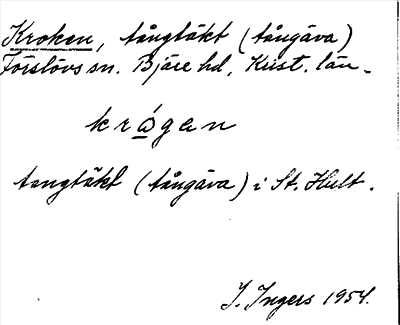 Kroken, tångtäkt (tångäva)
Förslövs sn. Bjäre hd, Krist. län.
krågen
tångtäkt (tångäva) i St. Hult.
I. Ingers 1954.